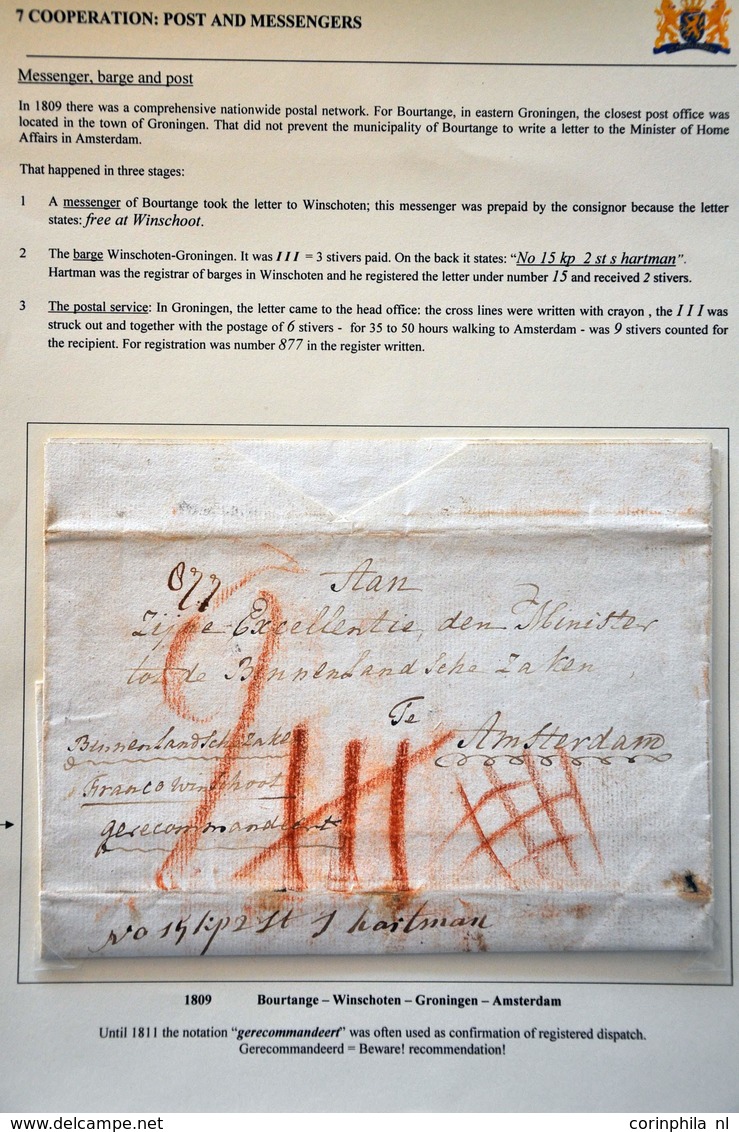 7 COOPERATION: POST AND MESSENGERS
Messenger, barge and post
In 1809 there was a comprehensive nationwide postal network. For Bourtange, in eastern Groningen, the closest post office was
located in the town of Groningen. That did not prevent the municipality of Bourtange to write a letter to the Minister of Home
Affairs in Amsterdam.
That happened in three stages:
1 A messenger of Bourtange took the letter to Winschoten; this messenger was prepaid by the consignor because the letter
states: free at Winschoot.
2 The barge Winschoten-Groningen. It was III = 3 stivers paid. On the back it states: “No 15 kp 2 st s hartman”.
Hartman was the registrar of barges in Winschoten and he registered the letter under number 15 and received 2 stivers.
3 The postal service: In Groningen, the letter came to the head office: the cross lines were written with crayon , the III was
struck out and together with the postage of 6 stivers - for 35 to 50 hours walking to Amsterdam - was 9 stivers counted for
the recipient. For registration was number 877 in the register written.
877 Aan
Zijne Excellentie, den Minister
tot de Binnenlandsche Zaken
Te Amsterdam
Binnenlandsche Zake
Franco Winschoot
gerecommandeert
9 III
No 15 kp 2 st s hartman
1809 Bourtange – Winschoten – Groningen – Amsterdam
Until 1811 the notation “gerecommandeert” was often used as confirmation of registered dispatch.
Gerecommandeerd = Beware! recommendation!
www.delcampe.net corinphila nl